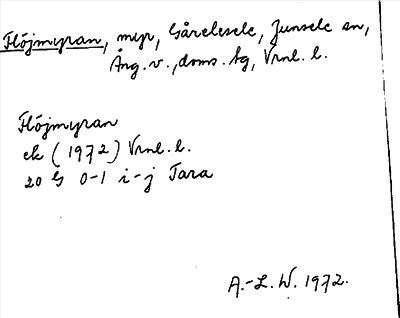 Flöjmyran, myr, Gårelesele, Junsele sn,
Ång. v., doms. tg, Vrnl. l.
Flöjmyran
ek (1972) Vrnl. l.
20 G 0-1 i-j Tara
A.-L. W. 1972.